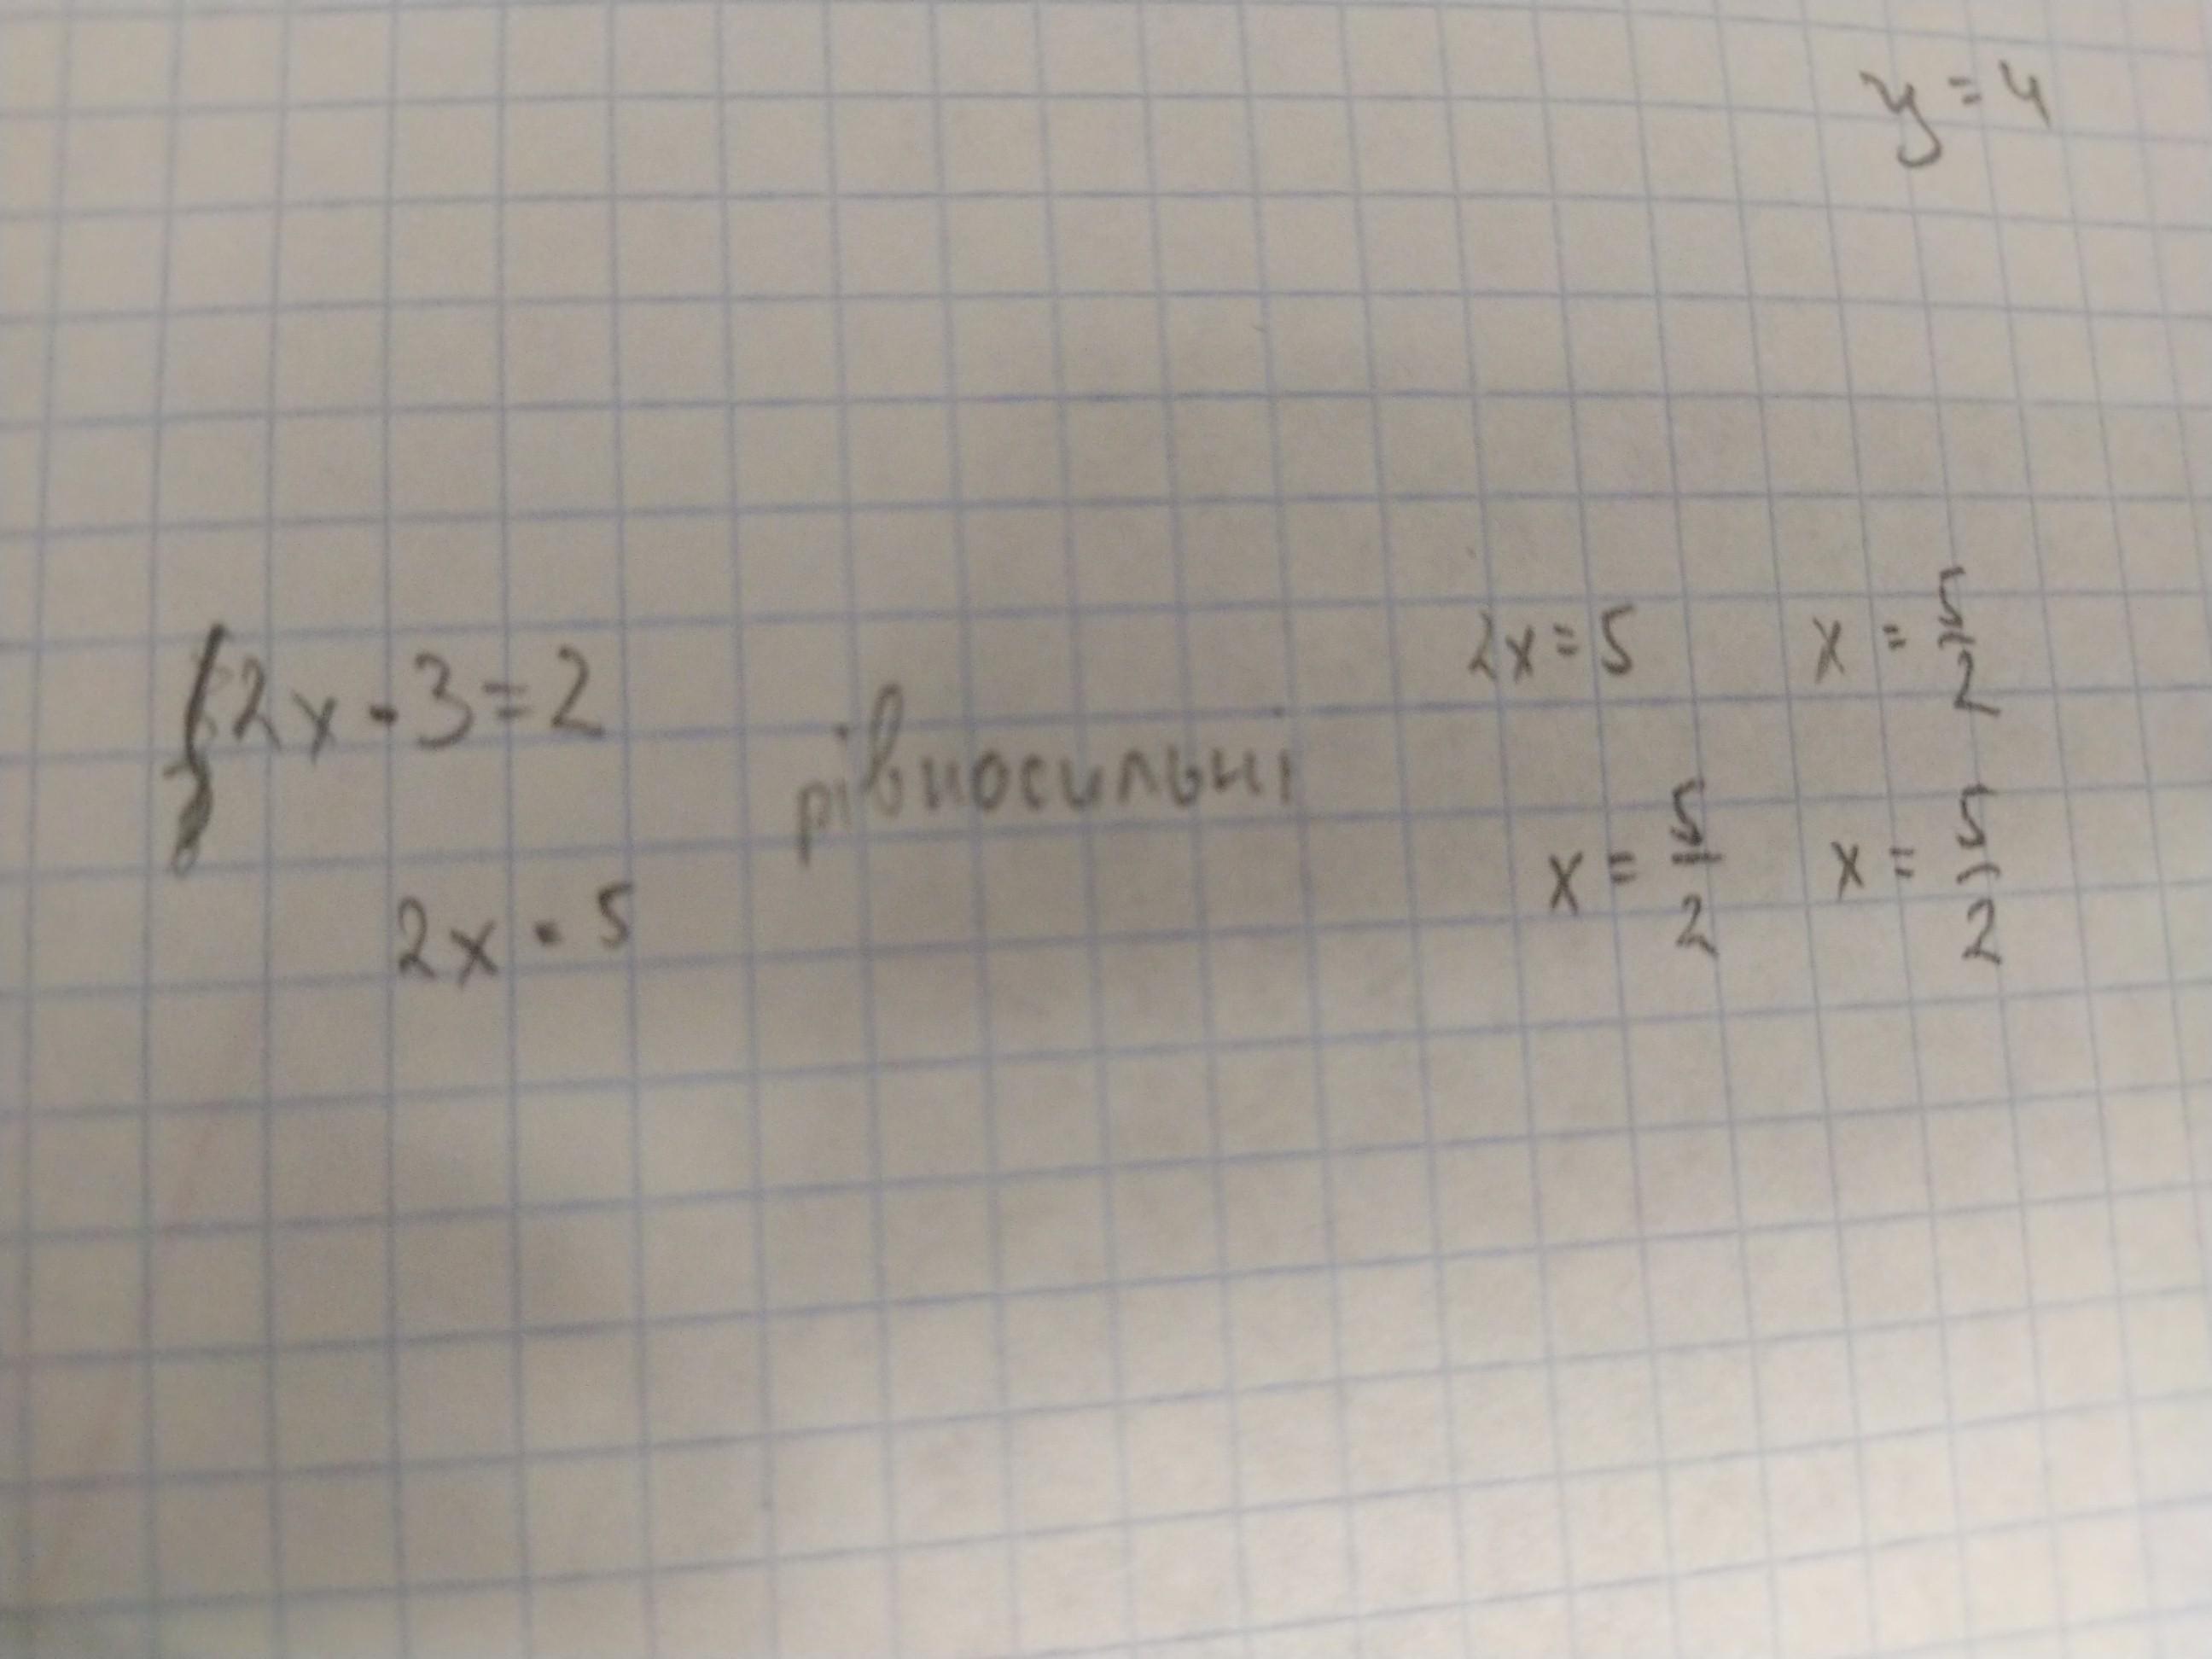 y = 4
2x - 3 = 2
2x = 5
рівносильні
2x = 5 x = 5/2
x = 5/2 x = 5/2